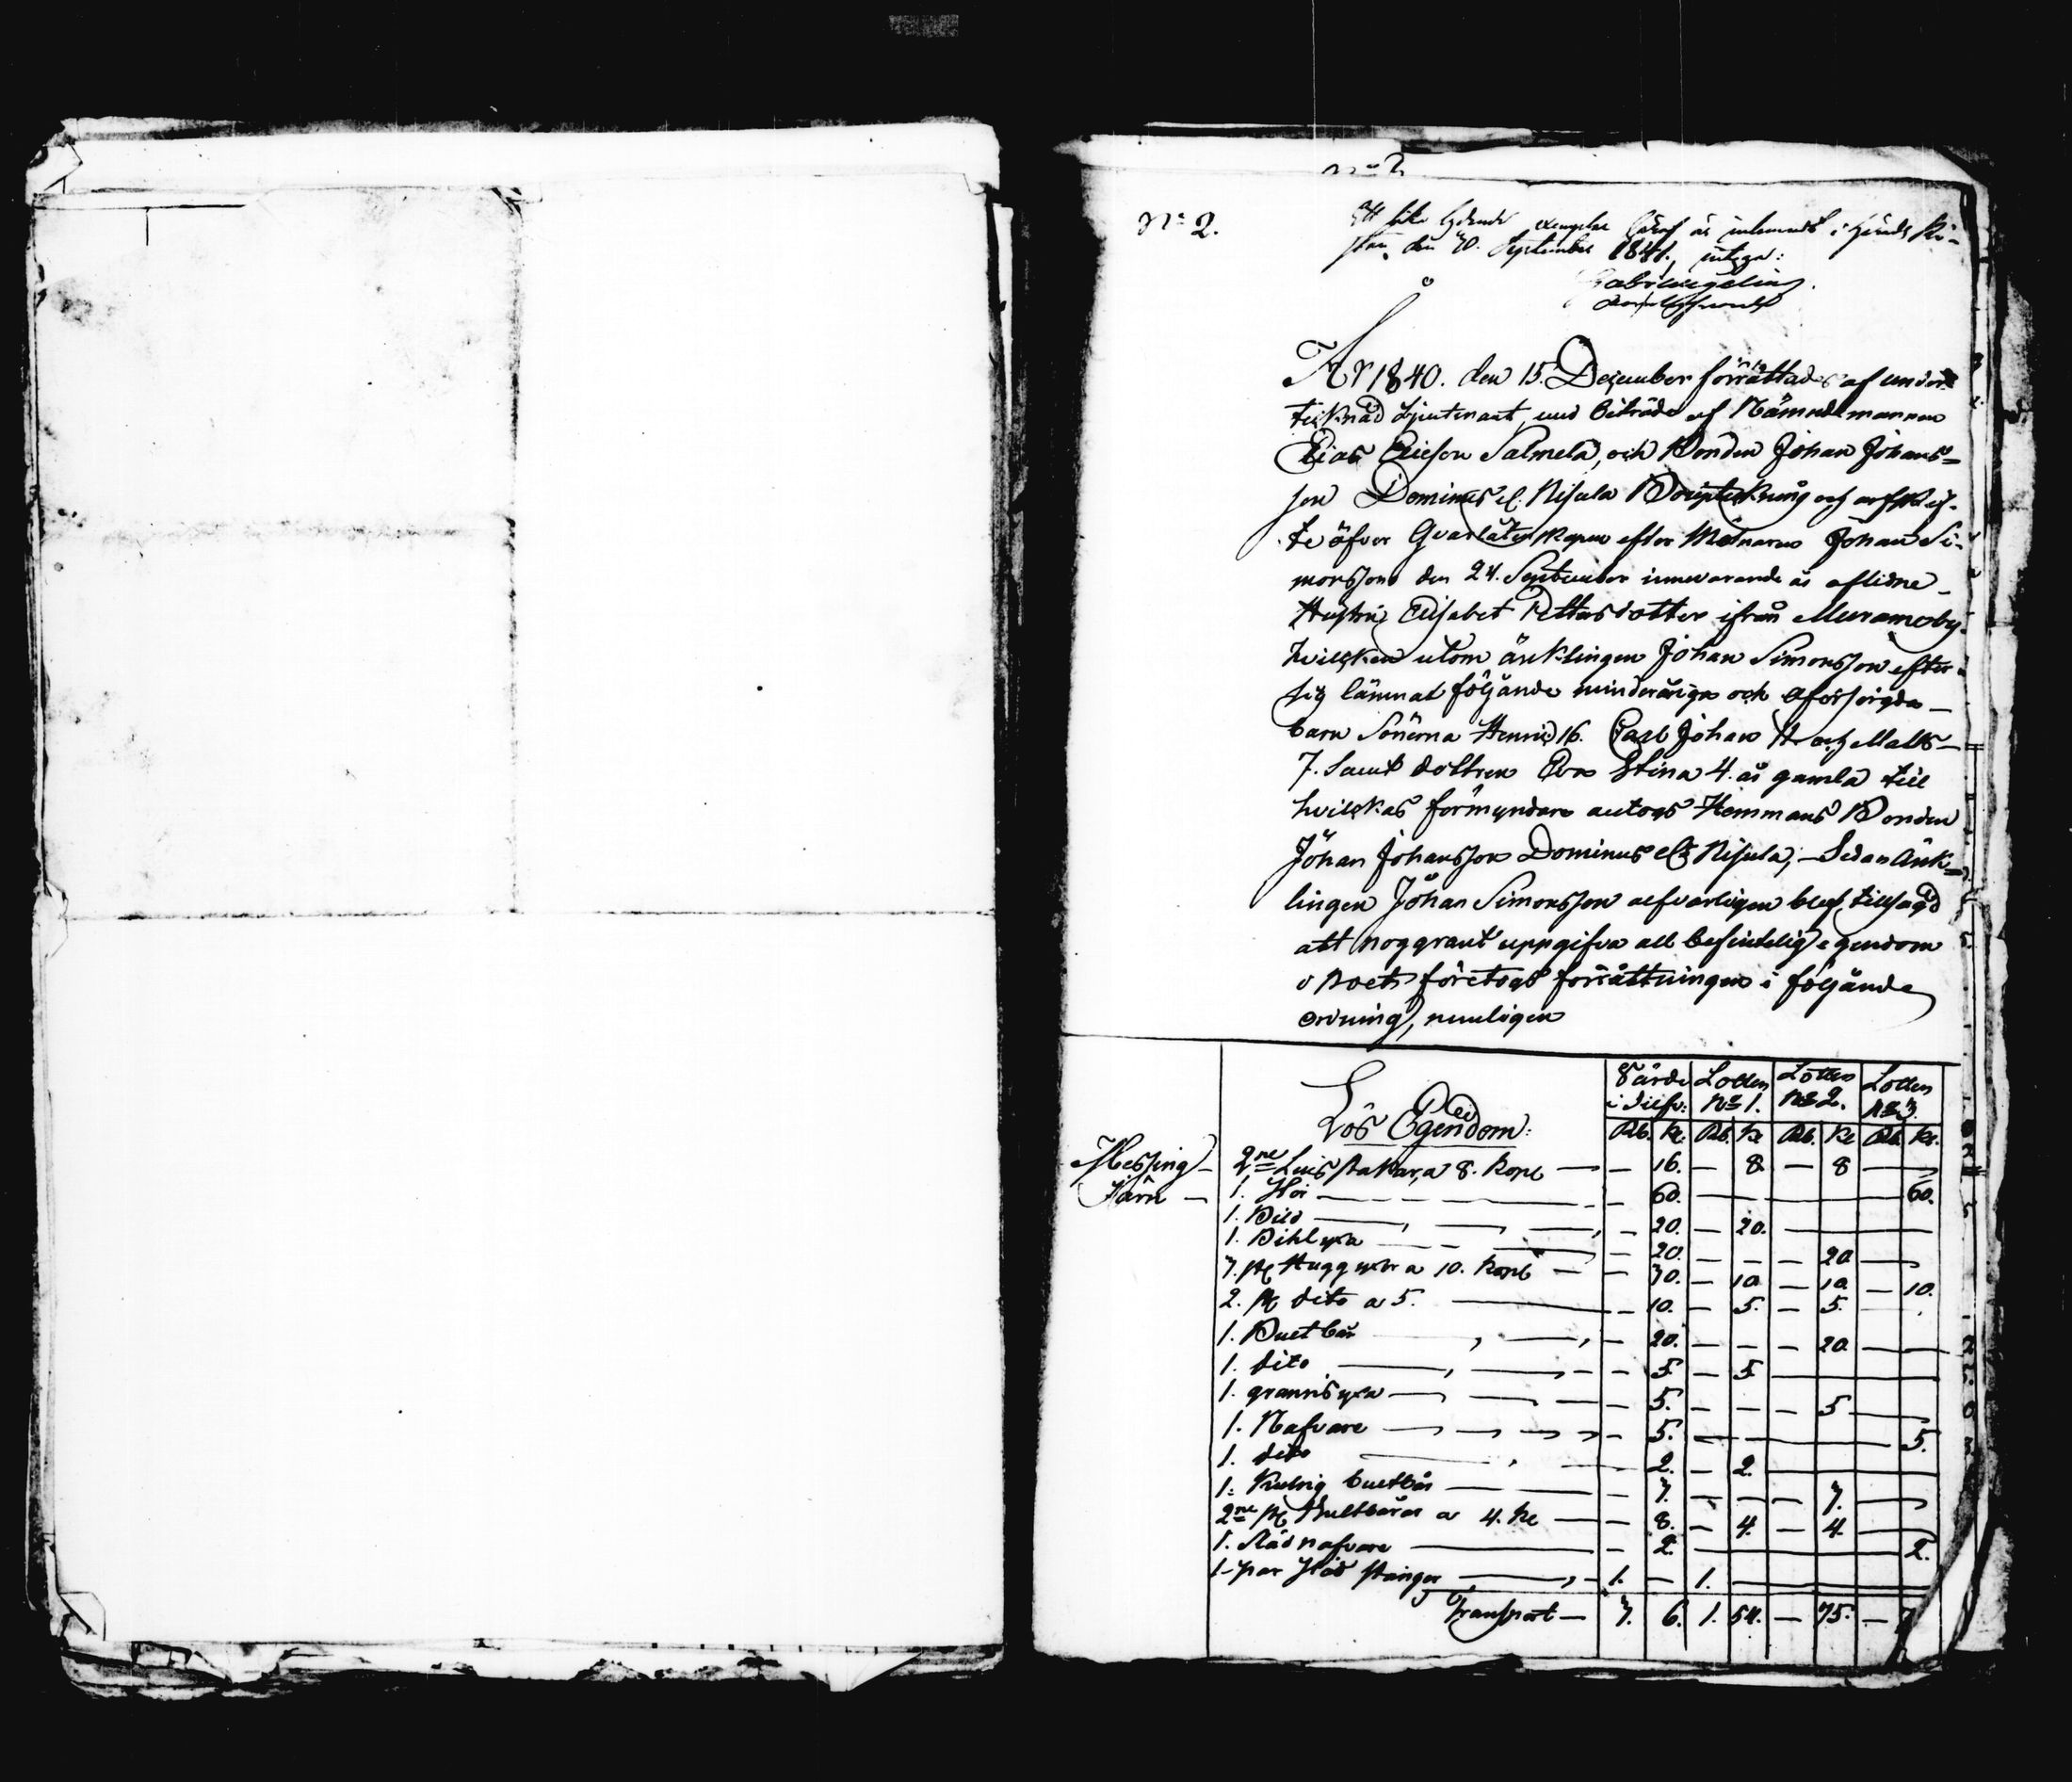 N:o 2.
N:o 2.
Ett lika lydande exemplar häraf är inlemnadt i Härads Ki-
stan, den 30. September 1841, intyga:
År 1840. den 15. December förrättades af under
teknad Ljutenant, med biträde af Nämndemannen
Elias Ericson Salmela, och Bonden Johan Johans=
son Dominus el. Nisula Boupteknung och arfskif-
te öfver Qvarlåtenskapen efter Mölnaren Johan Si-
monssons den 24. September innevarande år aflidne
Hustru Elisabet Pettersdotter ifrån Murame by,
hvilken utom änklingen Johan Simonsson efter
sig lämnat följande minderåriga och oförsörgda
barn Sönerna Henric 16. Carl Johan 11 och Matts
7. samt dottren Eva Stina 4. år gamla till
hvilkas förmyndare antogs Hemmans Bonden
Johan Johansson Dominus el. Nisula, – Sedan Änk=
lingen Johan Simonsson alfvarligen blef tillsagd
att noggrant uppgifva all befintelig egendom
företogs förrättningen i följande
ordning, nemligen
Lös Egendom:
Värde i Silfv: Lotten N:o 1. Lotten N:o 2. Lotten N:o 3.
Rb. Ke. Rb. Ke Rb. Ke Rb. Ke.
Messing – 2ne Ljusstakar, a 8. Kope — — 16. — 8. — 8 —
Järn — 1. — 60. — 60.
1. Bild — 20. — 20. —
1. Bihlyxa — 20. — — — 20 —
3. st Huggyxor a 10. Kope — — 30. — 10 — 10 — 10.
2. st dito a 5. — 10. — 5. — 5. —
1. Bultbår — 20. — — — 20 —
1. dito — 5. — 5 —
1. yxa — 5. — — — 5 —
1. Nafvare — 5. — 5.
1. dito — 2. — 2. —
1. bultbår — 7. — — — 7. —
2ne st Bultbårar a 4. Ke — — 8. — 4 — 4 —
1. nafvare — 2. — 2.
1. par stänger — 1. — 1. —
Transport — 3. 6. 1. 54. — 75. —